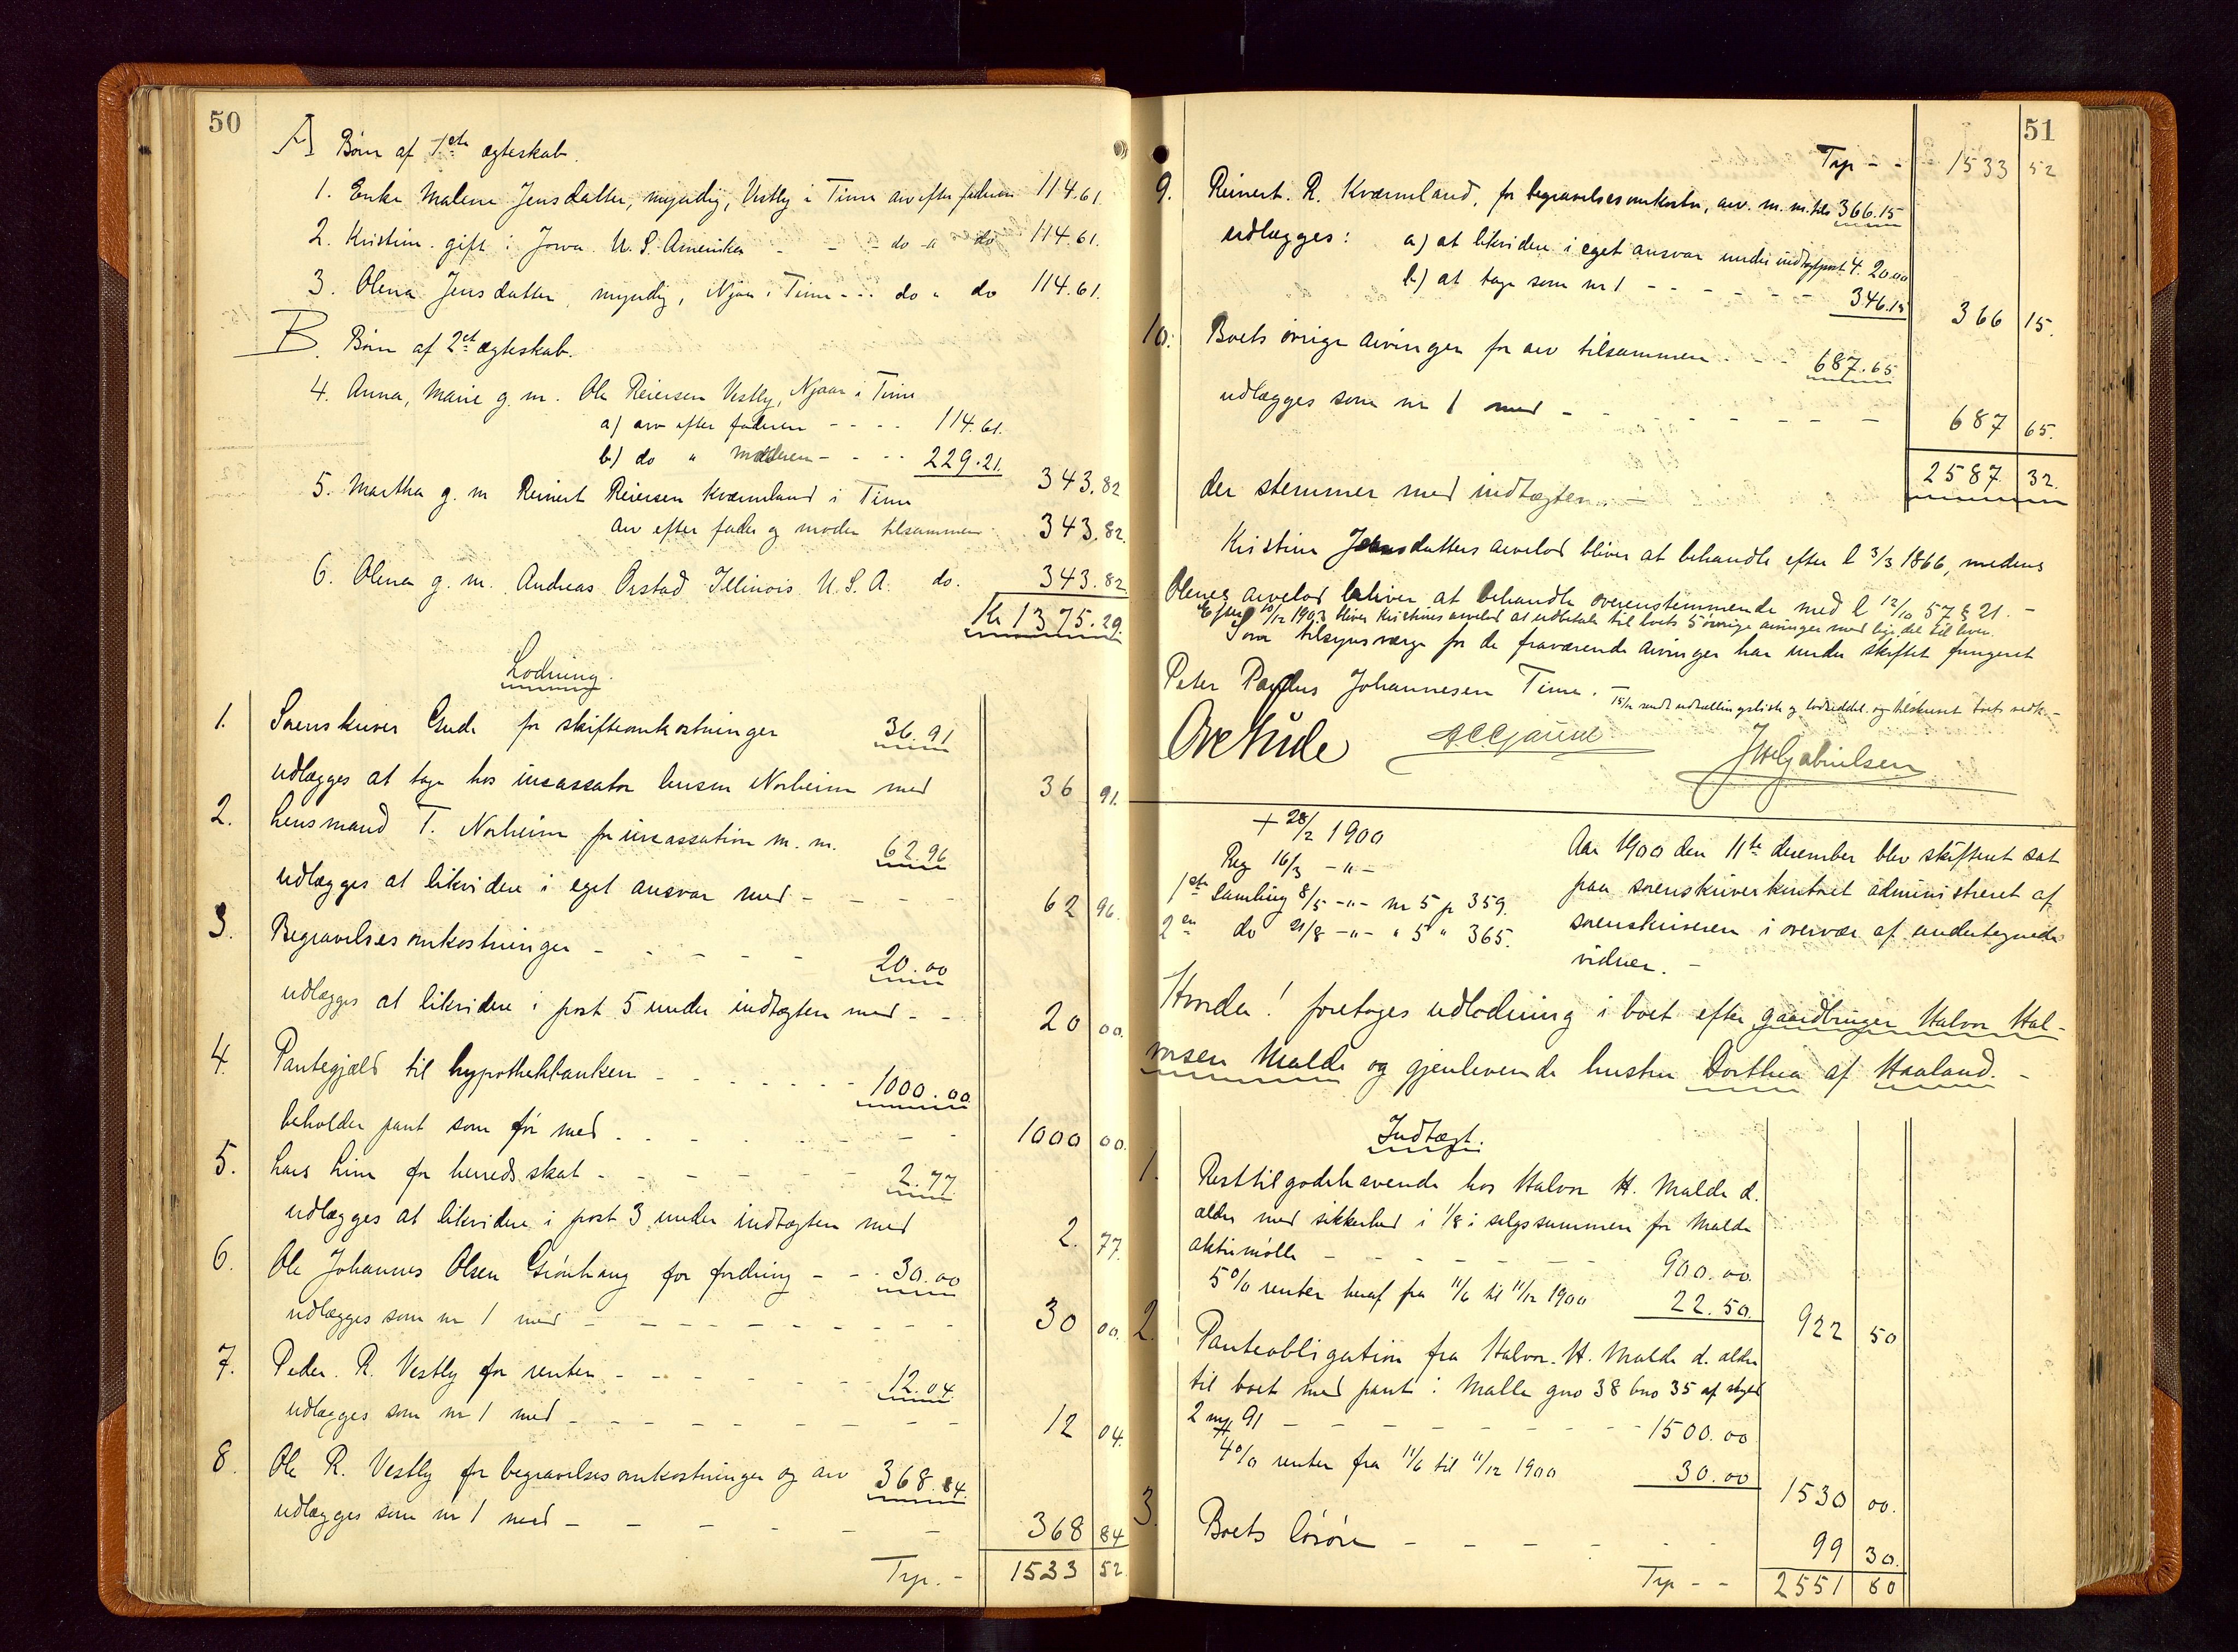 50
A) Børn af 1ste ægteskab.
1. Enke Malene Jensdatter, myndig, Vestly i Time arv efter faderen 114.61.
2. Kristine gift i Jowa U. S. Amerika - - - do - a do 114.61.
3. Olena Jensdatter, myndig, Njaa i Time - - - do " do 114.61.
B. Børn af 2det ægteskab.
4. Anna, Marie g. m. Ole Reiersen Vestly, Njaa i Time
a) arv efter faderen - - - - 114.61.
b) do " moderen - - - - 229.21.
343.82
5. Martha g. m. Reinert Reiersen Kværneland i Time
arv efter fader og moder tilsammen 343.82.
6. Olena g. m. Andreas Orstad Illinois U. S. A. do. 343.82
Kr 1375.29.
Lodning.
1. Sorenskriver Gude for skifteomkostninger 36.91
udlægges at tage hos incassator lensm Norheim med 36 91.
2. Lensmand T. Norheim for incassation m. m. 62.96
udlægges at likvidere i eget ansvar med - - - - 62 96.
3. Begravelsesomkostninger - - - - - 20.00
udlægges at likvidere i post 5 under indtægten med - - 20 00.
4. Pantegjæld til hypothekbanken - - - - - - 1000.00
beholder pant som før med - - - - - - 1000 00.
5. Lars Lima for herredsskat - - - - - 2.77
udlægges at likvidere i post 3 under indtægten med 2. 77.
6. Ole Johannes Olsen Grønhaug for fordring - - - 30.00
udlægges som nr 1 med - - - - - - - - - - 30 00.
7. Peder R. Vestly for renter - - - - - - 12.04
udlægges som nr 1 med - - - - - - - - - 12 04.
8. Ole R. Vestly for begravelsesomkostninger og arv 368.84.
udlægges som nr 1 med - - - - - - 368 84
Trp. - 1533 52
51
Trp - - 1533 52
9. Reinert. R. Kværneland, for begravelsesomkostn, arv. m. m. tils 366.15
udlægges: a) at likvidere i eget ansvar under indtægtpost 4. 20.00
b) at tage som nr 1 - - - - - - 346.15
366 15.
10. Boets øvrige arvinger for arv tilsammen - - - 687.65
udlægges som nr 1 med - - - - - - - - 687 65.
der stemmer med indtægten. - 2587 32.
Kristine Jensdatters arvelod bliver at behandle efter l 3/3 1866, medens
Olenes arvelod bliver at behandle overenstemmende med l 12/10 57 § 21. -
Efter 10/12 1903 bliver Kristines arvelod at udbetale til boets 5 øvrige arvinger med lige del til hver.
Som tilsynsværge for de fraværende arvinger har under skiftet fungeret
Peter Paulus Johannesen Time. -
15/12 sendt udtællingsliste og lodseddel. og tilskrevet boets vedk. -
Ove Gude
J W Gabrielsen
+ 28/2 1900
Reg 16/3 - " -
1ste samling 8/5 - " - nr 5 p 359.
2en do 21/8 - " - " 5 " 365.
Aar 1900 den 11te december blev skifteret sat
paa sorenskriverkontoret administreret af
sorenskriveren i overvær af undertegnede
vidner. -
Hvorda! foretoges udlodning i boet efter gaardbruger Halvor Hal-
vorsen Malde og gjenlevende hustru Dorthea af Haaland. -
Indtægt.
1. Resttilgodehavende hos Halvor H. Malde d.
ældre med sikkerhed i 1/8 i salgssummen for Malde
aktiemølle - - - - - - 900.00.
5% renter heraf fra 11/6 til 11/12 1900 22.50.
922 50
2. Panteobligation fra Halvor H. Malde d. ældre
til boet med pant i Malle gno 38 bno 35 af skyld
2 mk 91 - - - - - - - 1500.00
4% renter fra 11/6 til 11/12 1900 30.00
1530 00.
3. Boets løsøre - - - - - - 99 30.
Trp - - 2551 80